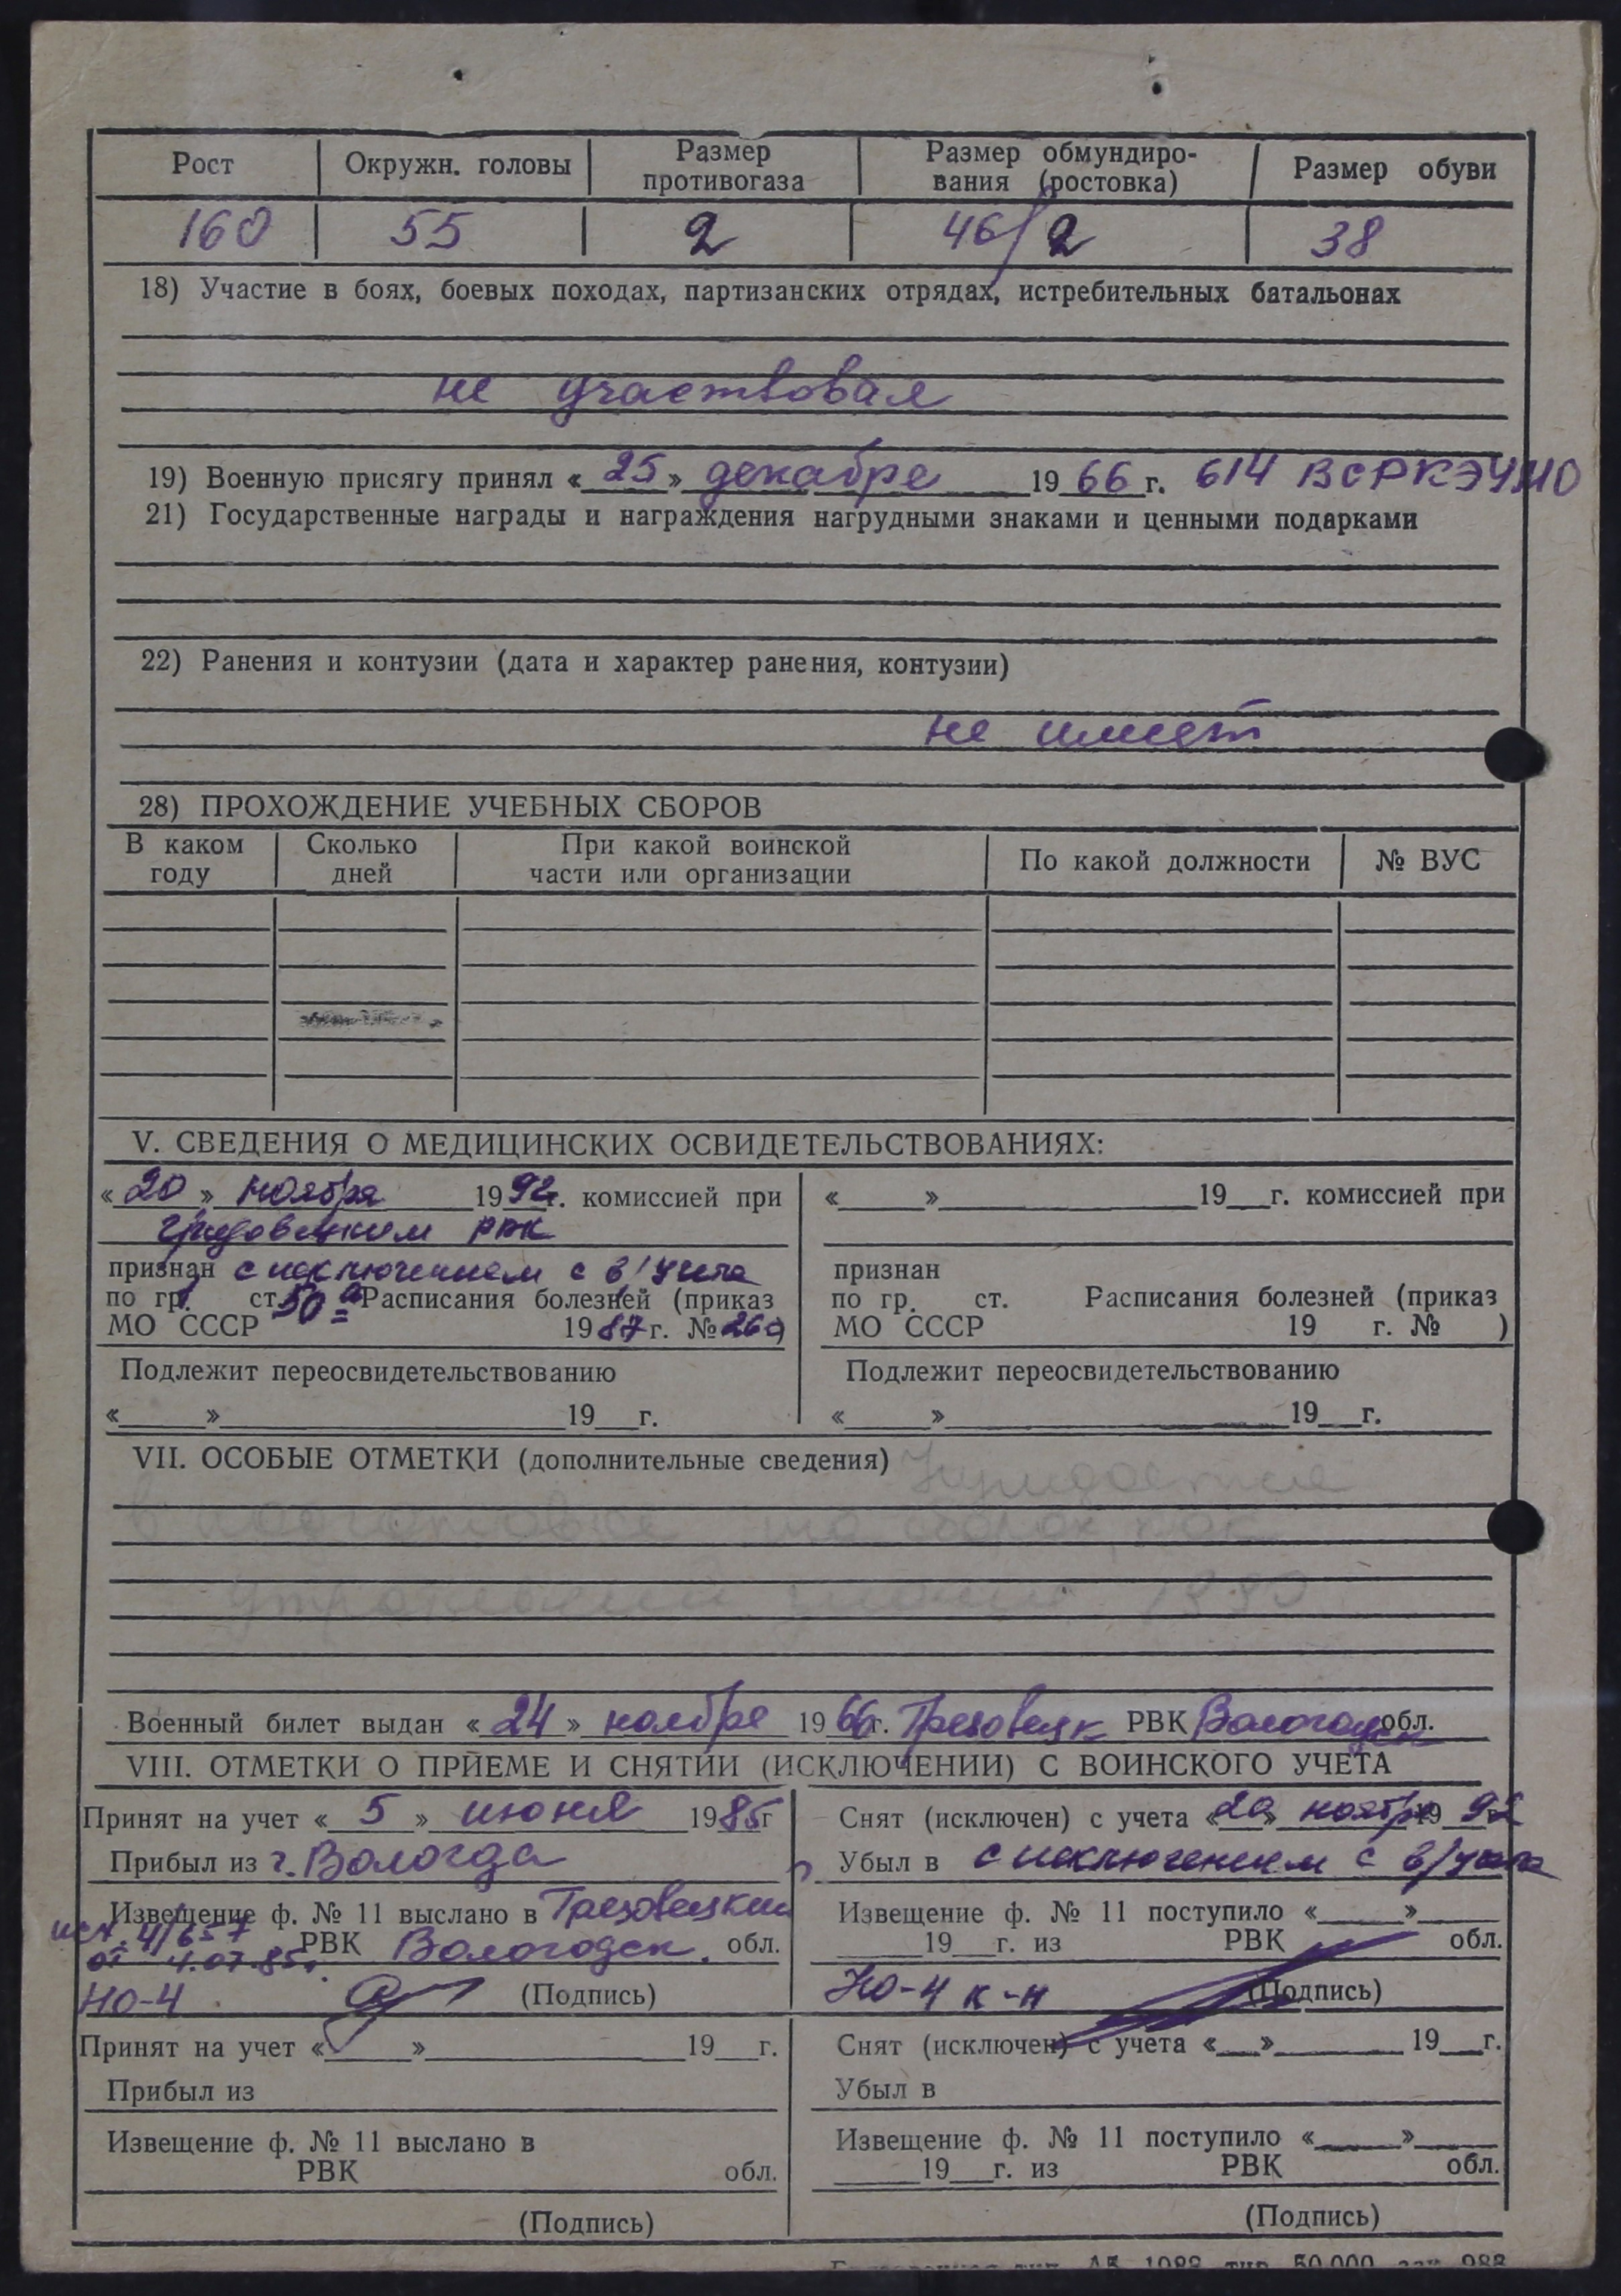 Рост Окружн. головы Размер противогаза Размер обмундиро-вания (ростовка) Размер обуви
160 55 2 46/2 38
18) Участие в боях, боевых походах, партизанских отрядах, истребительных батальонах
не участвовал
19) Военную присягу принял «25» декабре 1966 г. 614 ВСРКЭУМО
21) Государственные награды и награждения нагрудными знаками и ценными подарками
22) Ранения и контузии (дата и характер ранения, контузии)
не имеет
28) ПРОХОЖДЕНИЕ УЧЕБНЫХ СБОРОВ
В каком году Сколько дней При какой воинской части или организации По какой должности № ВУС
V. СВЕДЕНИЯ О МЕДИЦИНСКИХ ОСВИДЕТЕЛЬСТВОВАНИЯХ:
«20» ноября 1992г. комиссией при
РВК
признан с исключением с в/учета
по гр. ст. 50а Расписания болезней (приказ
МО СССР 1987 г. № 260)
Подлежит переосвидетельствованию
«___» ___ 19__г.
«___» ___ 19__г. комиссией при
признан
по гр. ст. Расписания болезней (приказ
МО СССР 19 г. № )
Подлежит переосвидетельствованию
«___» ___ 19__г.
VII. ОСОБЫЕ ОТМЕТКИ (дополнительные сведения) Нуждается
Военный билет выдан «24» ноября 1966г. Грязовецк РВК Вологодск обл.
VIII. ОТМЕТКИ О ПРИЕМЕ И СНЯТИИ (ИСКЛЮЧЕНИИ) С ВОИНСКОГО УЧЕТА
Принят на учет «5» июня 1985г
Прибыл из г. Вологда
Извещение ф. № 11 выслано в Грязовецкий
исх. 4/657 РВК Вологодск. обл.
от 4.07.85г.
НО-4 (Подпись)
Снят (исключен) с учета «20» ноября 1992
Убыл в с исключением с в/учета
Извещение ф. № 11 поступило «___» ___
___19__г. из РВК обл.
НО-4 к-н (Подпись)
Принят на учет «___» ___ 19__г.
Прибыл из
Извещение ф. № 11 выслано в
РВК обл.
(Подпись)
Снят (исключен) с учета «___» ___ 19__г.
Убыл в
Извещение ф. № 11 поступило «___» ___
___19__г. из РВК обл.
(Подпись)